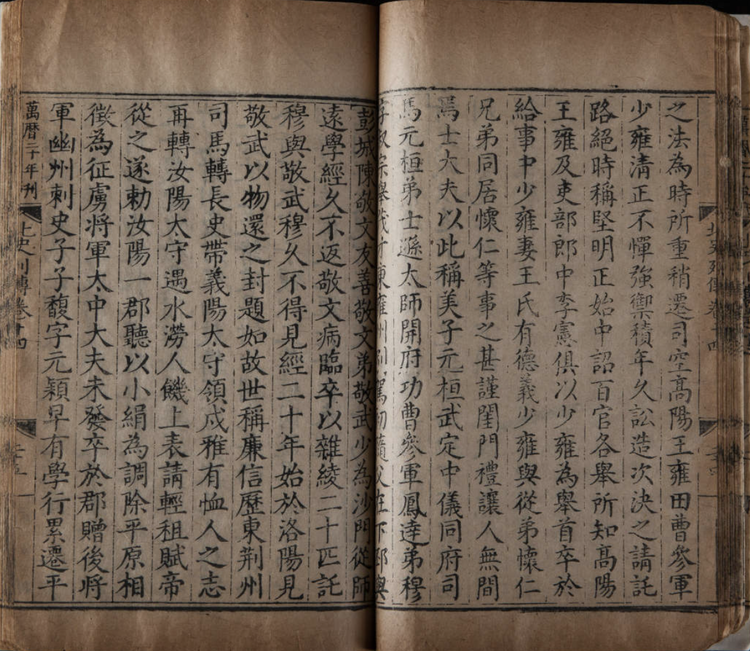 之法為時所重稍遷司空高陽王雍田曹參軍
少雍清正不憚強禦積年久訟造次決之請託
路絕時稱堅明正始中詔百官各舉所知高陽
王雍及吏部郎中李憲俱以少雍為舉首卒於
給事中少雍妻王氏有德義少雍與從弟懷仁
兄弟同居懷仁等事之甚謹閨門禮讓人無間
焉士大夫以此稱美子元桓武定中儀同府司
馬元桓弟士遜太師開府功曹參軍鳳達弟穆
彭城陳敬文友善敬文弟敬武少為沙門從師
遠學經久不返敬文病臨卒以雜綾二十匹託
穆與敬武穆久不得見經二十年始於洛陽見
敬武以物還之封題如故世稱廉信歷東荊州
司馬轉長史帶義陽太守領戍雅有恤人之志
再轉汝陽太守遇水澇人饑上表請輕租賦帝
從之遂勅汝陽一郡聽以小絹為調除平原相
徵為征虜將軍太中大夫未發卒於郡贈後將
軍幽州刺史子子馥字元穎早有學行累遷平
萬曆二十年刊
北史列傳卷十四